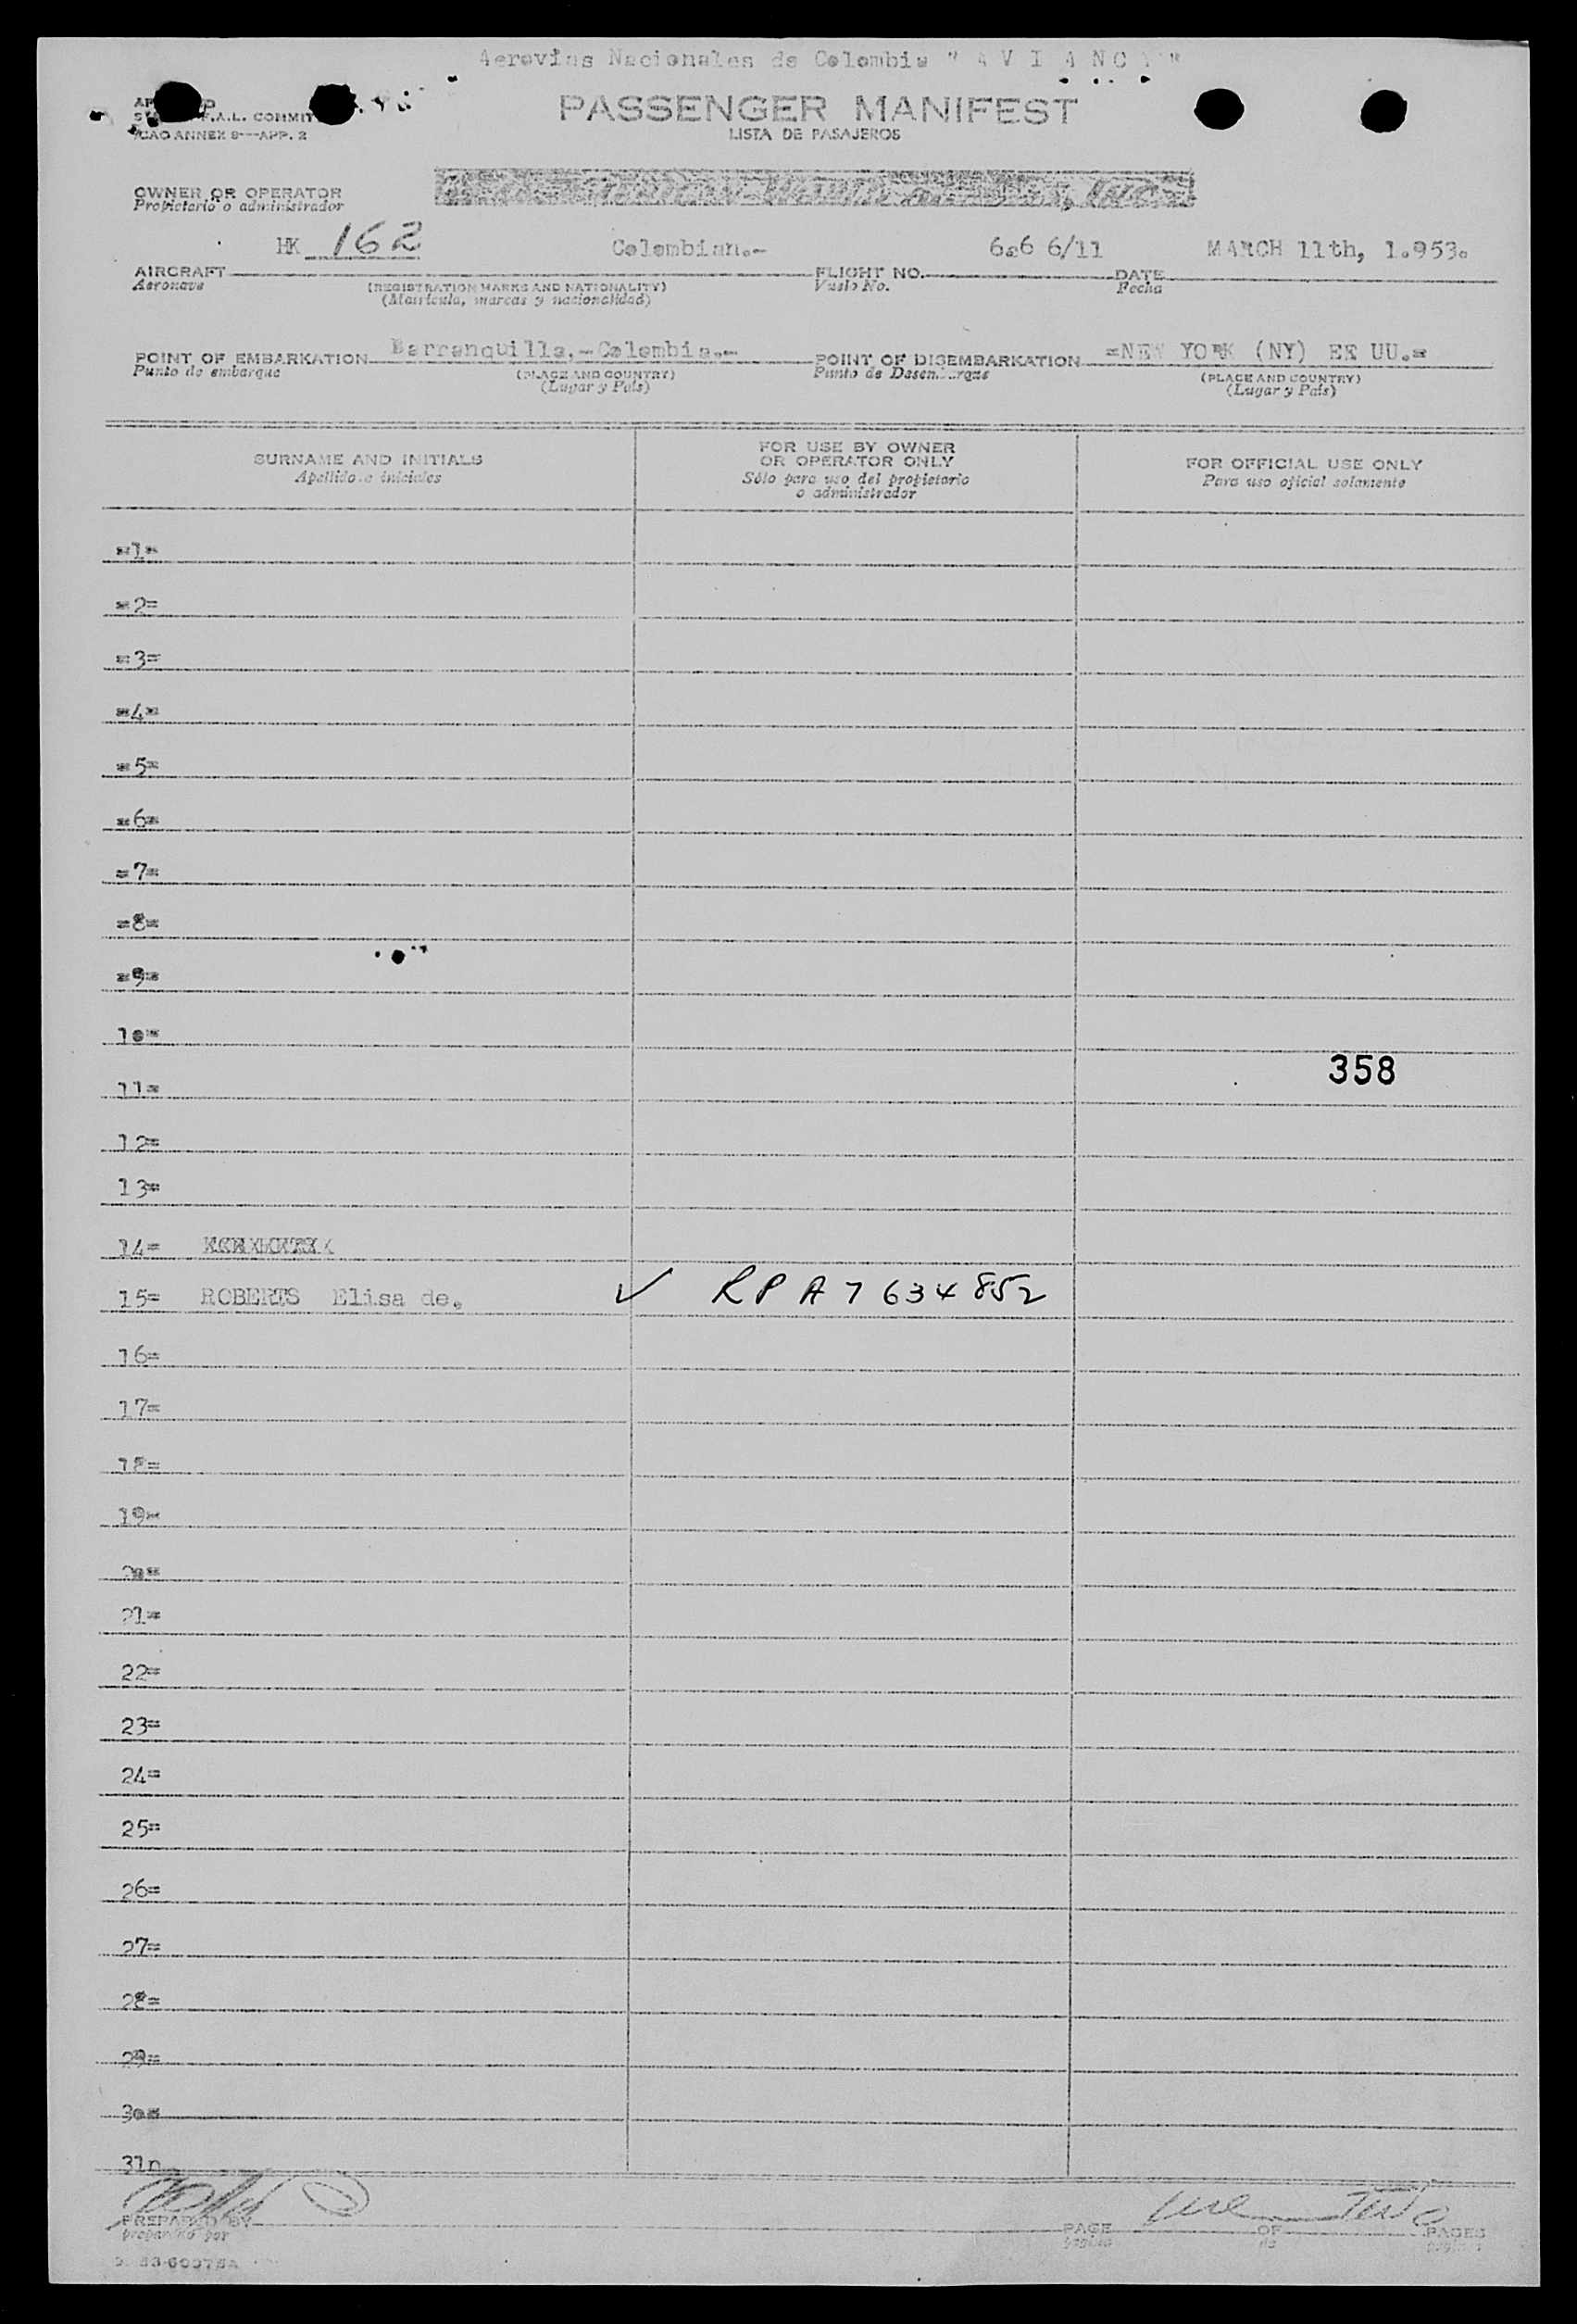 Aerovias Nacionales de Colombia " A V I A N C A "
F.A.L. COMMIT
ICAO ANNEX 9---APP. 2
PASSENGER MANIFEST
LISTA DE PASAJEROS
OWNER OR OPERATOR
Propietario o administrador
HK 162 Colombian.- 6a6 6/11 MARCH 11th, 1.953.
AIRCRAFT FLIGHT NO. DATE
Aeronave (REGISTRATION MARKS AND NATIONALITY) Vuelo No. Fecha
(Matrícula, marcas y nacionalidad)
Barranquilla.-Colombia.- =NEW YORK (NY) EE UU.=
POINT OF EMBARKATION POINT OF DISEMBARKATION
Punto de embarque (PLACE AND COUNTRY) Punto de Desembarque (PLACE AND COUNTRY)
(Lugar y País) (Lugar y País)
SURNAME AND INITIALS
Apellido e iniciales
FOR USE BY OWNER
OR OPERATOR ONLY
Sólo para uso del propietario
o administrador
FOR OFFICIAL USE ONLY
Para uso oficial solamente
=1=
=2=
=3=
=4=
=5=
=6=
=7=
=8=
=9=
10=
358
11=
12=
13=
14=
15= ROBERTS Elisa de. ✓ RP A7634852
16=
17=
18=
19=
20=
21=
22=
23=
24=
25=
26=
27=
28=
29=
30=
31n
PREPARED BY
preparado por
PAGE OF PAGES
página de páginas